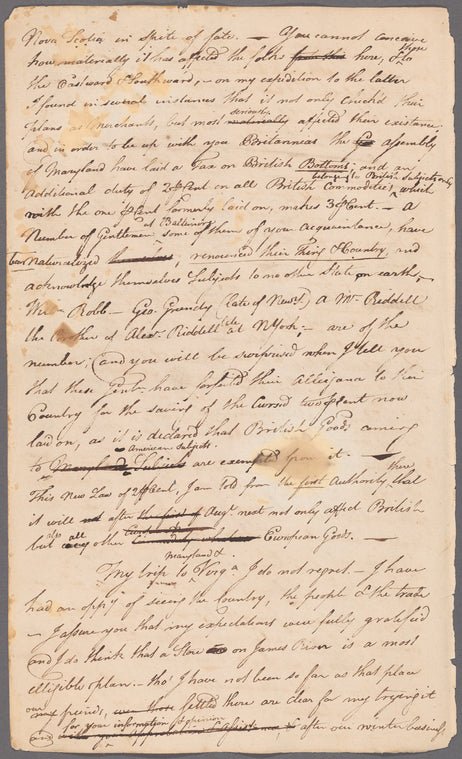 Nova Scotia in spite of fate. — You cannot conceive
how materially it has affected the folks here, & to those
the Eastward & Southward, — on my expedition to the latter
I found in several instances that it not only their
plans as Merchants, but most seriously materially affected their existance,
and in order to be up with you Britanneas the assembly
of Maryland have laid a Tax on British Bottoms; and an
additional duty of 2 ⅌ Cent on all British Commodities, belonging to British Subjects only which
with the one ⅌ Cent formerly laid on, makes 3 ⅌ Cent. — A
Number of Gentlemen at Baltimore some of them of your acquaintance, have
been Naturalized, renounced their King & Country, and
acknowledge themselves Subjects to no other State on earth, —
Robb — Geo. Grundy (late of New Y.) a Mr. Riddell
the brother of Alexr. Riddell late at N York; — are of the
number; and you will be surprised when I tell you
that these Gentn. have forfeited their Alleigance to their
Country for the saving of the Cursed two ⅌ Cent now
laid on, as it is declared that British Goods coming
to American Subjects Maryland Subjects are exempted from it. —
This New Law of 2 ⅌ Cent, I am told from the first Authority there, that
it will not after the first of Augt. next not only affect British
but also all any other European Goods. —
My trip to Maryland & Virga. I do not regret. — I have
had an oppy. of seeing the Country, the people & the trade
— I assure you that my expectations were fully gratified
and I do think that a Store on James River is a most
elligible plan — tho' I have not been so far as that place
our friends, settled there are clear for my trying it
and for your information & opinion after our winter business,